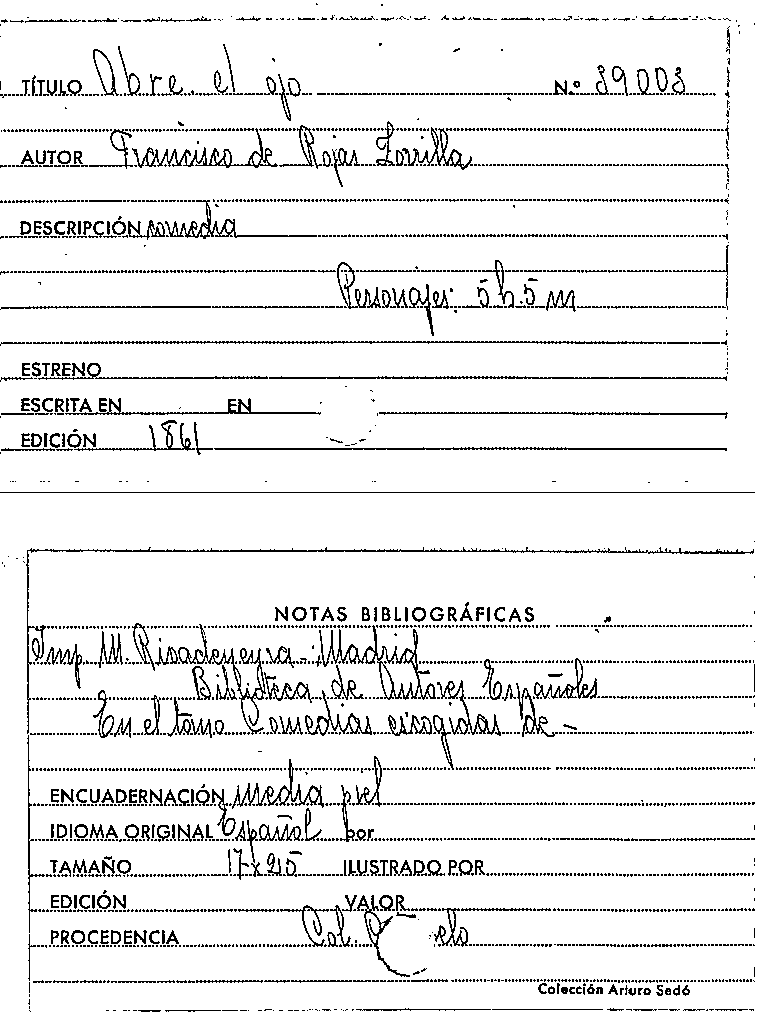 TÍTULO Abre el ojo N.º 39003
AUTOR Francisco de Rojas Zorrilla
DESCRIPCIÓN comedia
Personajes: 5 h. 5 m
ESTRENO
ESCRITA EN EN
EDICIÓN 1861
NOTAS BIBLIOGRÁFICAS
Imp. M. Rivadeneyra - Madrid
Biblioteca de Autores Españoles
En el tomo Comedias escogidas de -
ENCUADERNACIÓN media piel
IDIOMA ORIGINAL Español por
TAMAÑO ILUSTRADO POR
EDICIÓN VALOR
PROCEDENCIA Col.
Colección Arturo Sedó